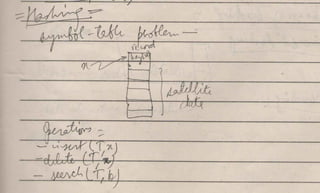 = Hashing =
symbol-table problem —
record
x → key[x]
satellite
data
Operations =
- insert (T, x)
- delete (T, x)
- search (T, k)